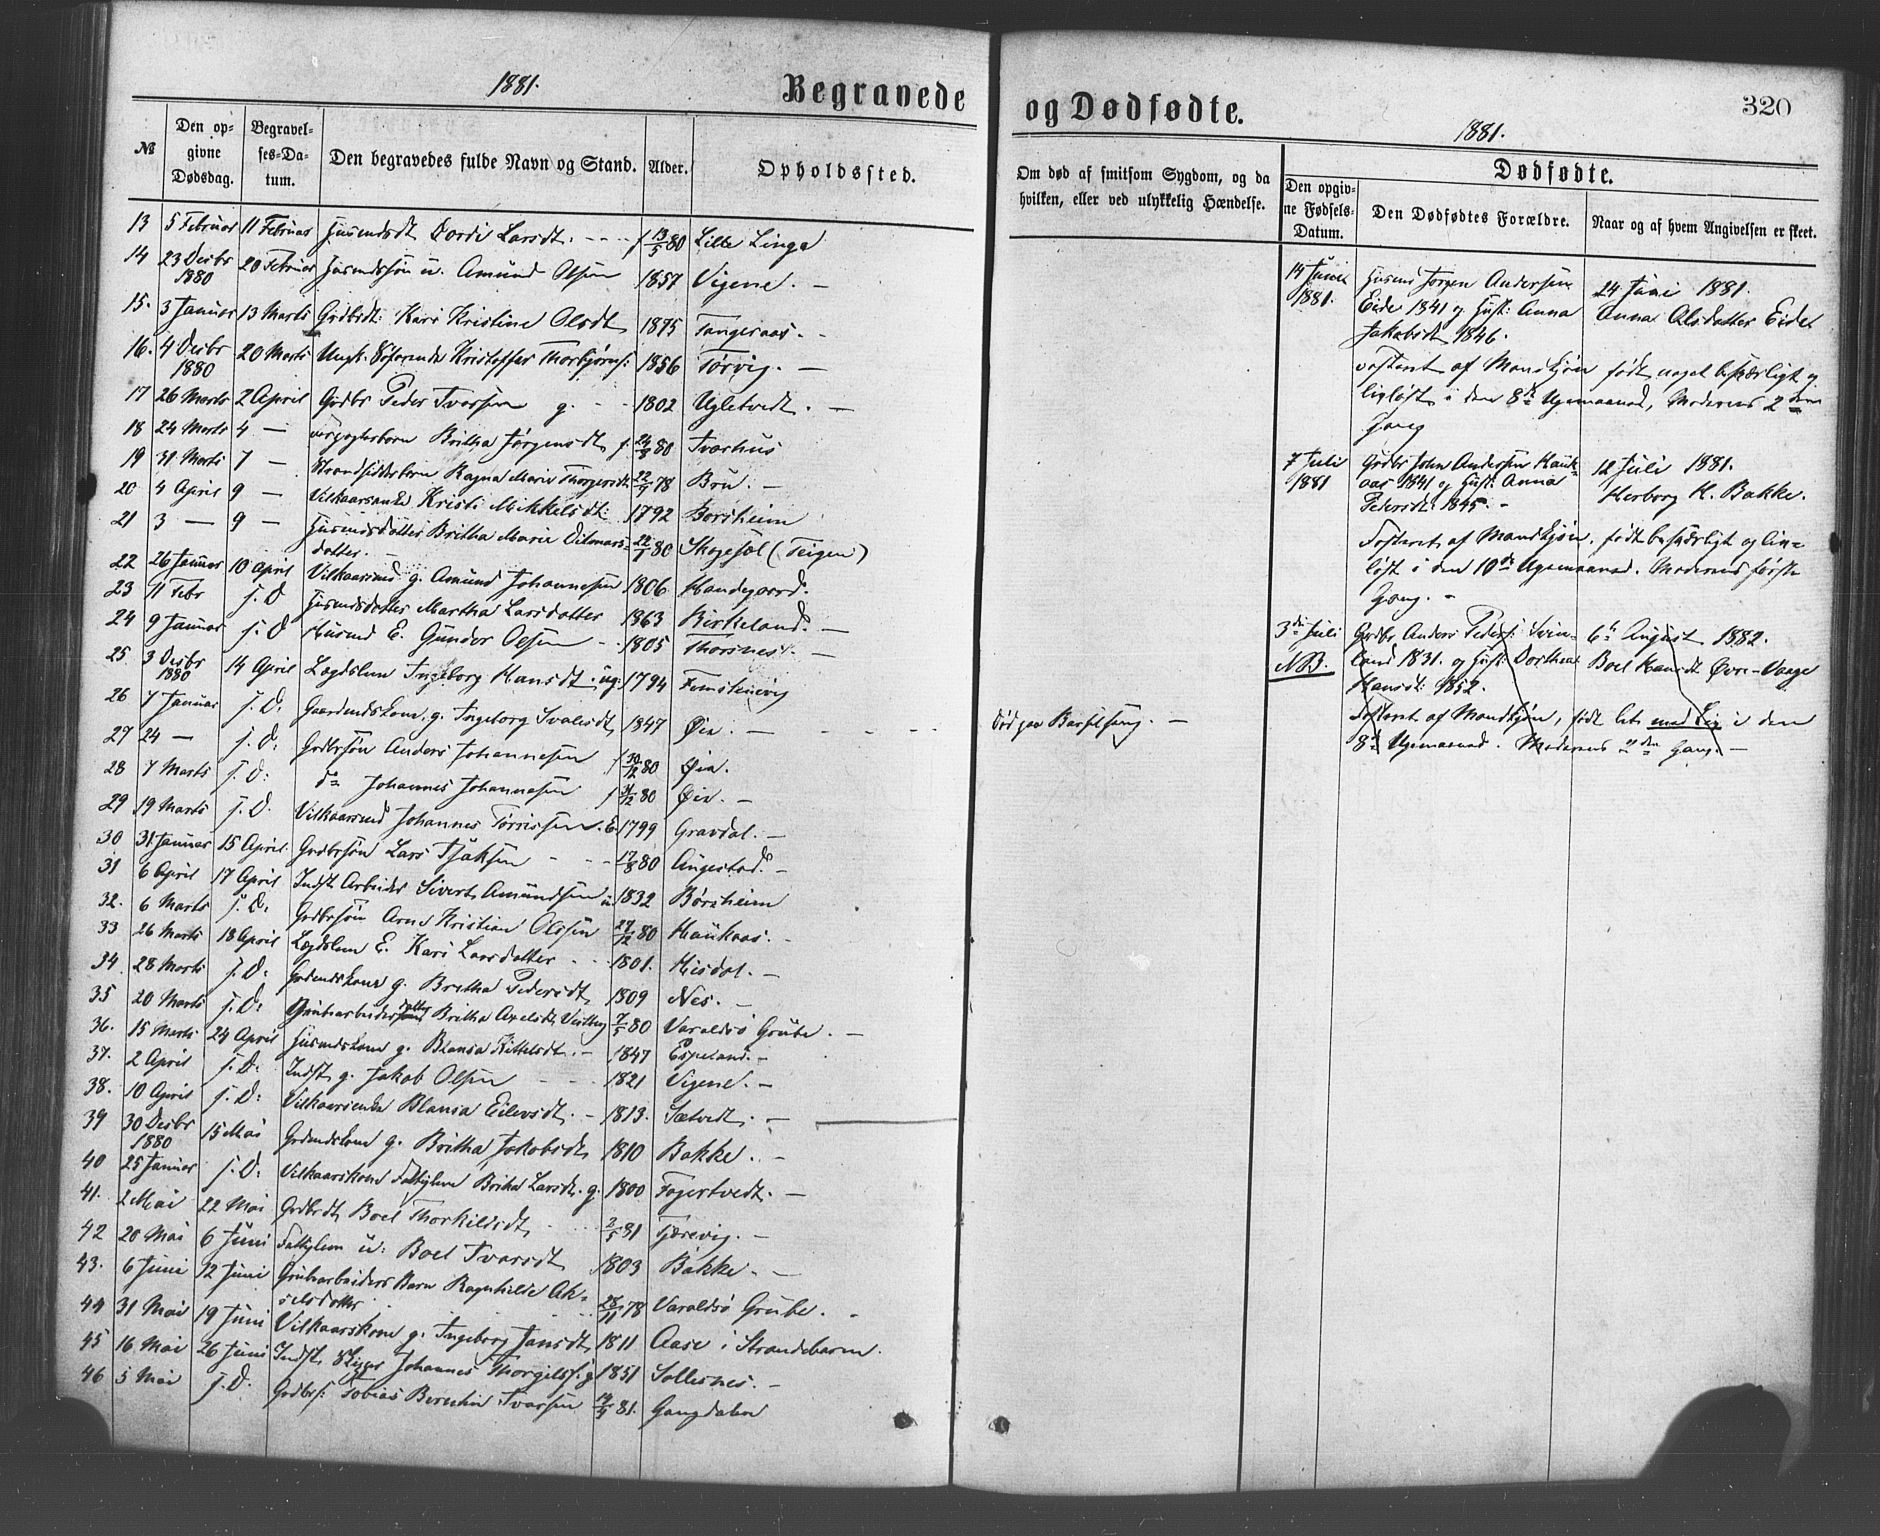 1881.
Begravede
№
Den opgivne Dødsdag.
Begravelses-Datum.
Den begravedes fulde Navn og Stand.
Alder.
Opholdssted.
13 5 Februar 11 Februar Husmdsdt Dordi Larsdt. f 13/5 80 Lille Linga
14 23 Desbr 1880 20 Februar Husmdssøn u. Amund Olsen 1857 Vigene. —
15. 3 Januar 13 Marts Grdbsdt: Kari Kristine Olsdt 1875 Tangeraas. -
16. 4 Desbr 1880 20 Marts Ungk. Søfarende Kristoffer Thorbjørns: 1856 Tørvig. —
17 26 Marts 2 April Grdbr Peder Ivarsen g. 1802 Ugletvedt. —
18 24 Marts 4 — Britha Jørgensdt f. 24/9 80 Tværhus
19 31 Marts 7 — Strandsidderbarn Ragna Marie Thorgersdt 22/9 78 Bru. —
20 4 April 9 — Vilkaarsenke Kristi Mikkelsdt: 1792 Borsheim
21 3 — 9 — Husmdsdatter Britha Marie Ditmarsdatter. — 22/1 80 Skogesæl (Teigen)
22 26 Januar 10 April Vilkaarsmd g. Amund Johannesen 1806 Handegaard.
23 11 Febr s. D Husmdsdatter Martha Larsdatter 1863 Birkeland. —
24 9 Januar s. D Husmd E. Gunder Olsen 1805 Thorsnes. —
25. 3 Desbr 1880 14 April Lægdslem Ingeborg Hansdt. ug: 1794 Femstenevig
26 7 Januar s. D. Gaardmdskone, g. Ingeborg Ivarsdt 1847 Øie. —
27 24 — s. D. Grdbrsøn Anders Johannesen f 30/12 80 Øie.
28 7 Marts s. D: do Johannes Johannesen f 31/12 80 Øie. —
29 19 Marts s. D. Vilkaarsmd Johannes Tørrissen. E. 1799 Gravdal. —
30 31 Januar 15 April. Grdbrsøn Lars Isaksen 17/8 80 Augestad. —
31 6 April 17 April Indst Arbeider Sivert Amundsen u. 1832 Børsheim
32. 6 Marts s. D. Grdbrsøn Arne Kristian Olsen 27/12 80 Haukaas. -
33 26 Marts 18 April Lægdslem E. Kari Larsdatter 1801. Hisdal. —
34 28 Marts s. D. Grdmdskone g. Britha Pedersdt 1809 Nes. —
35 20 Marts s. D: Grubearbeiderdatter Britha Axelsdt 7/5 80 Varaldsø Grube. —
36. 15 Marts 24 April Husmdskone g. Blansa Kittelsdt. — 1847 Espeland. —
37. 2 April s. D. Indst g. Jakob Olsen 1821 Vigene. —
38. 10 April s. D: Vilkaarsenke Blansa Eilevsdt. — 1813. Sætvedt. —
39 30 Desbr 1880 15 Mai Grdmdskone g. Britha Jakobsdt 1810 Bakke. -
40 25 Januar s. D. Vilkaarskone Fattiglem Britha Larsdt. g. 1800 Fagertvedt. —
41. 2 Mai 22 Mai Grdbrdt Boel Thorkildsdt 2/5 81 Tjerevig. —
42 20 Mai 6 Juni Fattiglem u. Boel Ivarsdt 1803 Bakke. —
43. 6 Juni 12 Juni Grubearbeiders Barn Ragnhilde Akselsdatter 28/11 78 Varaldsø Grube. -
44 31 Mai 19 Juni Vilkaarskone g. Ingeborg Jansdt 1811 Aase i Strandebarm.
45 16 Mai 26 Juni Indst. Johannes Thorgilss: g 1851 Sollesnes. —
46 5 Mai s. D. Grdbrs: Tobias Berntin Ivarsen 19/4 81. Gangdalen
og Dødfødte.
320
1881.
Om død af smitsom Sygdom, og da hvilken, eller ved ulykkelig Hændelse.
Dødfødte.
Den opgivne Fødsels-Datum.
Den Dødfødtes Forældre.
Naar og af hvem Angivelsen er skeet.
Død paa Barselseng. —
14 Juni 1881. Husmd Jørgen Andersen 24 Juni 1881.
Eide 1841 og Hust: Anna Anna Olsdatter Eide.
Jakobsdt 1846.
Fosteret af Mandkjøn født noget besværligt og
livløst i den 8de Ugemaaned, Moderens 2den
Gang
7 Juli 1881 Grdbr John Andersen Haukaas 1841 og Hust: Anna 12 Juli 1881.
Pedersdt. 1845. - Herborg H. Bakke.
Fosteret af Mandkjøn, født besværligt og livløst i den 10de Ugemaaned. Moderens første
Gang. -
3die Juli Grdbr Anders Peders: Svinland 1831. og Hust: Dorthea 6te August 1882.
NB. Hansdt: 1852. Boel Hansdt Øvre-Vaage
Fosteret af Mandkjøn, født let med Liv i den
8de Ugemaaned. Moderens den Gang. —